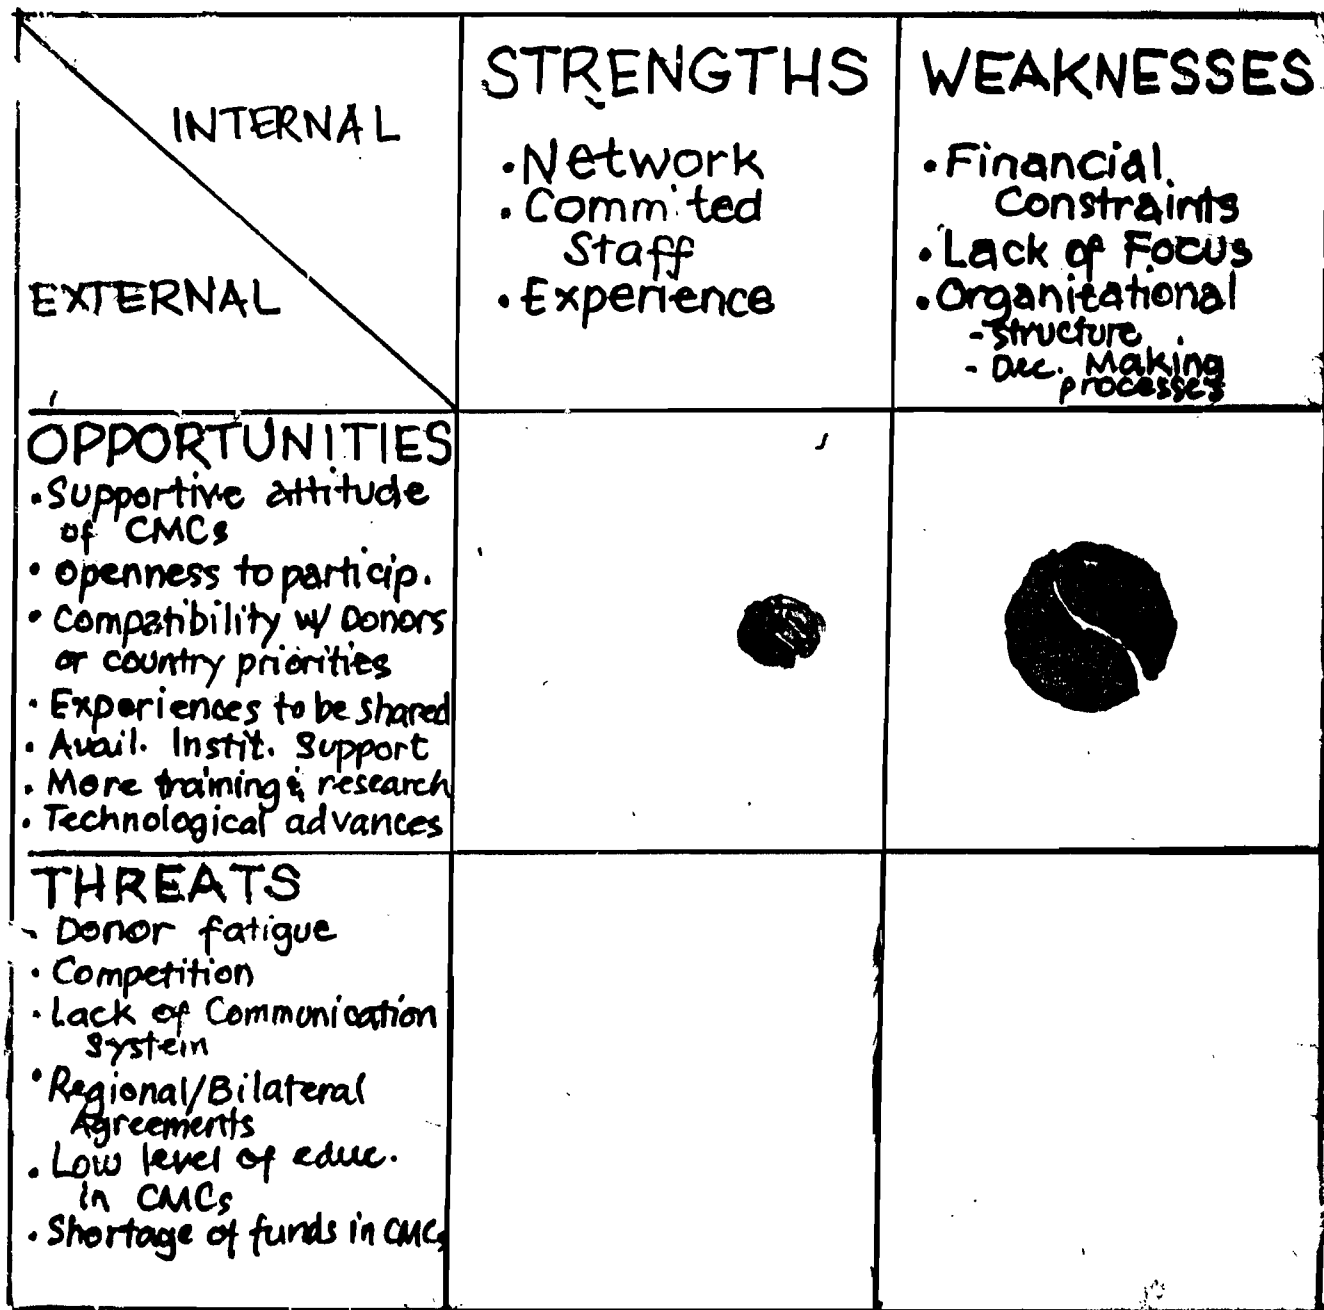 INTERNAL
EXTERNAL
STRENGTHS
• Network
• Commited
Staff
• Experience
WEAKNESSES
• Financial
Constraints
• Lack of Focus
• Organizational
- structure
- Dec. Making
processes
OPPORTUNITIES
• Supportive attitude
of CMCs
• Openness to particip.
• Compatibility w/ Donors
or country priorities
• Experiences to be shared
• Avail. Instit. Support
• More training & research
• Technological advances
THREATS
- Donor fatigue
• Competition
• Lack of Communication
System
• Regional/Bilateral
Agreements
• Low level of educ.
in CMCs
• Shortage of funds in CMCs